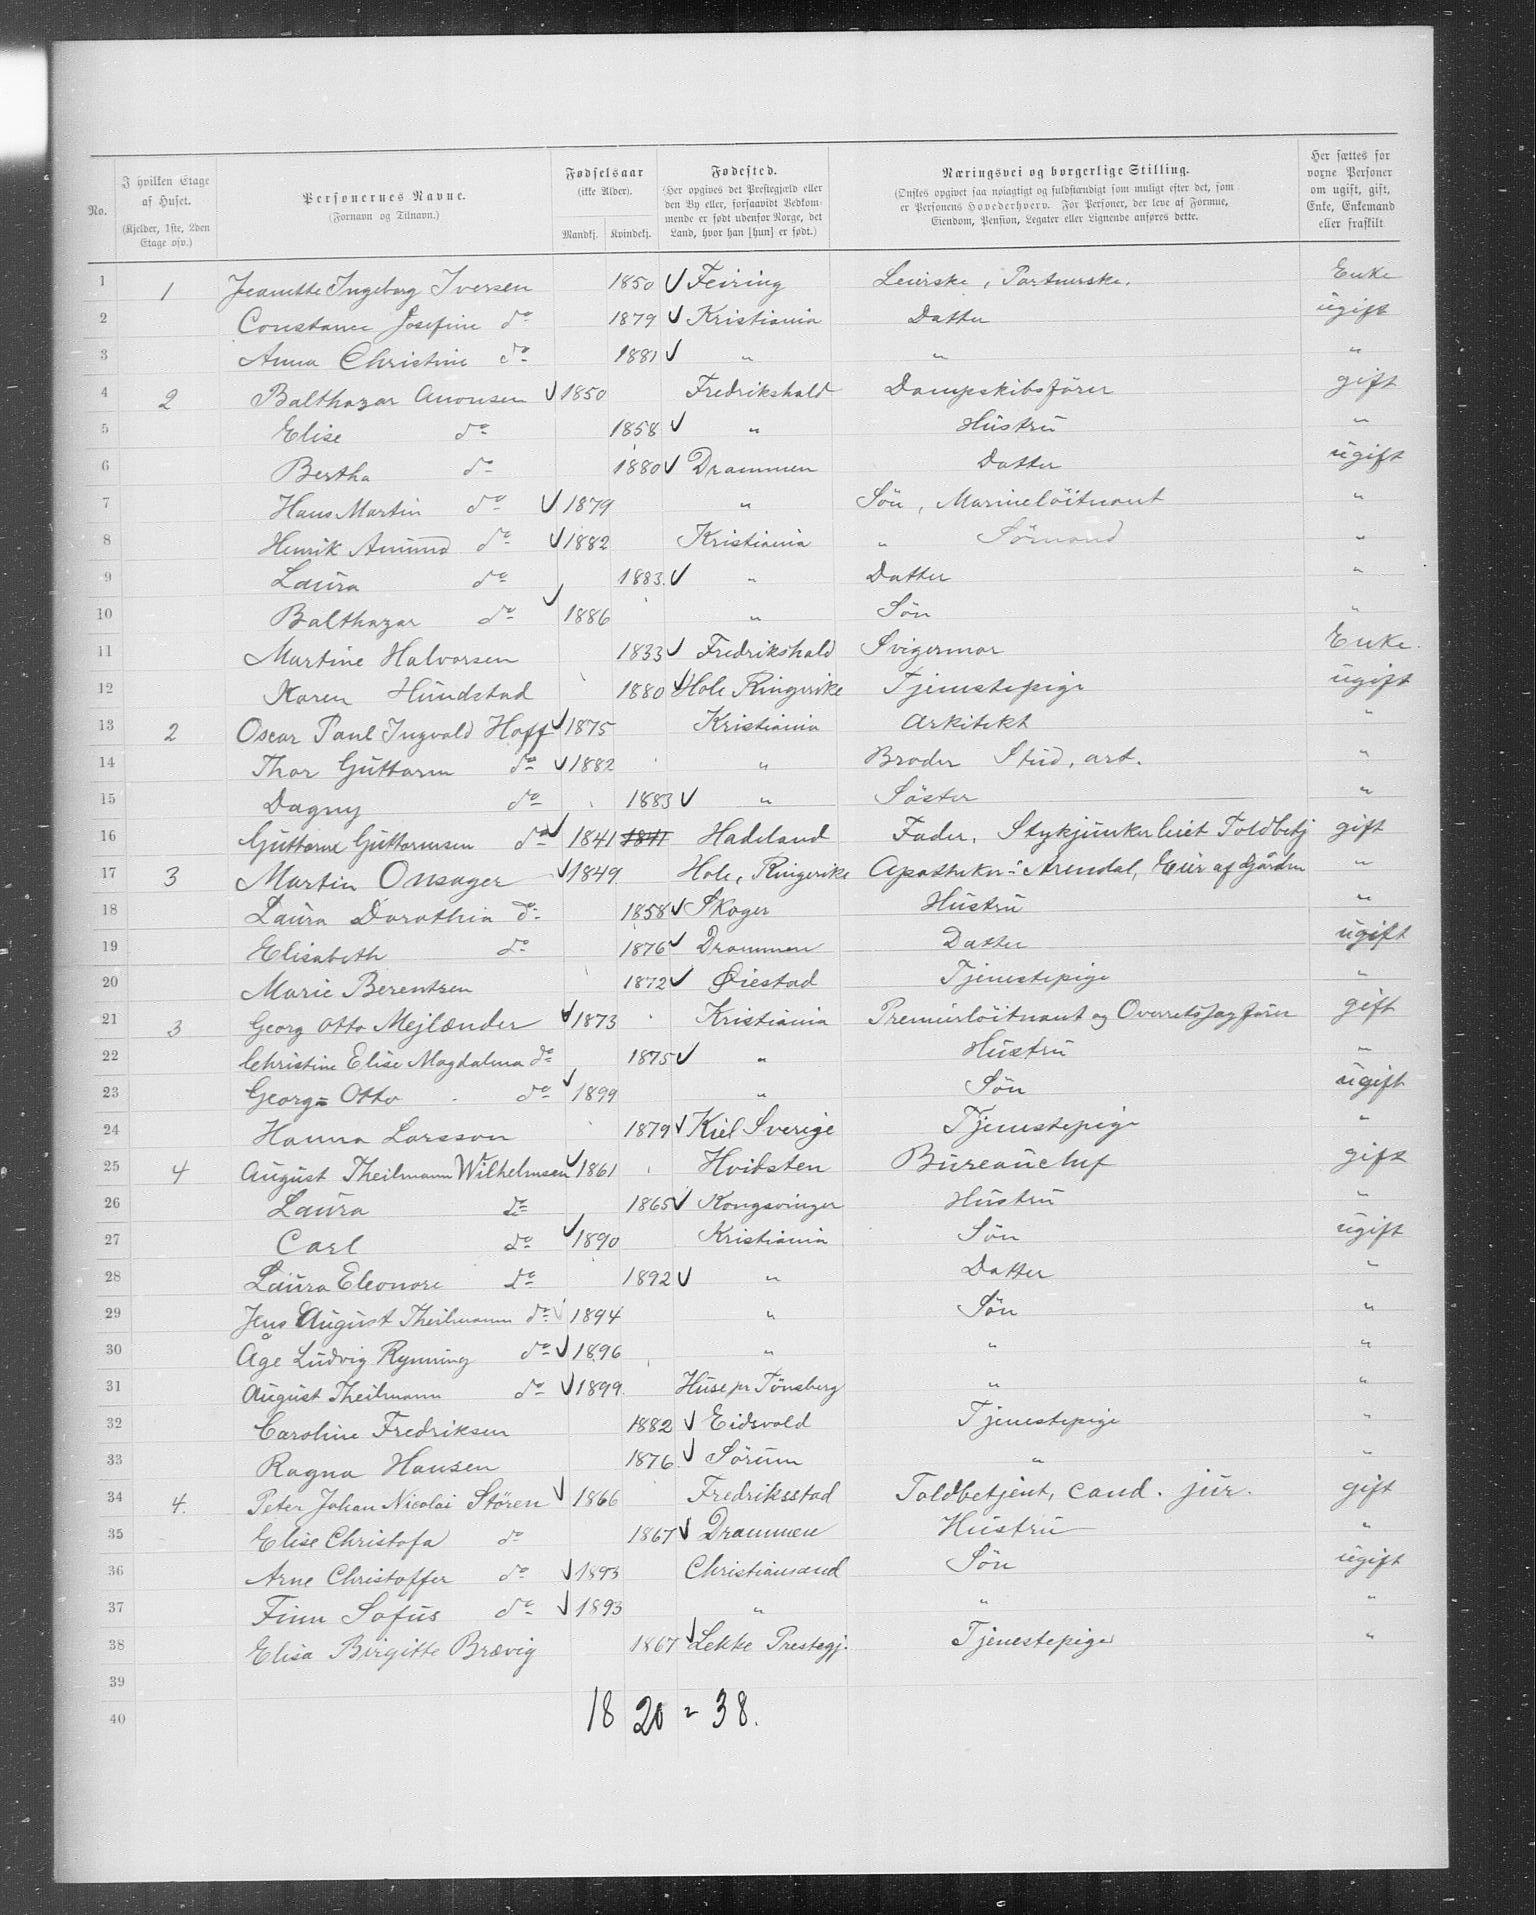 No. | I hvilken Etage af Huset. (Kjelder, 1ste, 2den Etage osv.) | Personernes Navne. (Fornavn og Tilnavn.) | Fødselsaar (ikke Alder). Mandkj. Kvindekj. | Fødested. (Her opgives det Prestegjæld eller den By eller, forsaavidt Vedkommende er født udenfor Norge, det Land, hvor han [hun] er født.) | Næringsvei og borgerlige Stilling. (Ønskes opgivet saa nøiagtigt og fuldstændigt som muligt efter det, som er Personens Hovederhverv. For Personer, der leve af Formue, Eiendom, Pension, Legater eller Lignende anføres dette.) | Her sættes for voxne Personer om ugift, gift, Enke, Enkemand eller fraskilt.
1 1 Jeanette Ingeborg Iversen 1850 ✓ Feiring Leierske, Portnerske. Enke
2 Constance Josefine do 1879 ✓ Kristiania Datter ugift
3 Anna Christine do 1881 ✓ " " "
4 2 Balthazar Anonsen ✓ 1850 Fredrikshald Dampskibsfører gift
5 Elise do 1858 ✓ " Hustru "
6 Bertha do 1880 ✓ Drammen Datter ugift
7 Hans Martin do ✓ 1879 " Søn, Marineløitnant "
8 Henrik Amund do ✓ 1882 Kristiania " Sømand "
9 Laura do 1883. ✓ " Datter "
10 Balthazar do ✓ 1886 " Søn "
11 Martine Halvorsen 1833 ✓ Fredrikshald Svigermor Enke.
12 Karen Hundstad 1880 ✓ Hole Ringerike Tjenestepige ugift
13 2 Oscar Paul Ingvald Hoff ✓ 1875 Kristiania Arkitekt "
14 Thor Guttorm do ✓ 1882 " Broder Stud. art. "
15 Dagny do 1883 ✓ " Søster "
16 Guttorm Guttormsen do ✓ 1841 1841 Hadeland Fader, Stykjunker leiet Toldbetj gift
17 3 Martin Onsager ✓ 1849 Hole, Ringerike Apotheker i Arendal, Eier af Gården "
18 Laura Dorothia do 1858 ✓ Skoger Hustru "
19 Elisabeth do 1876 ✓ Drammen Datter ugift
20 Marie Berentzen 1872 ✓ Øiestad Tjenestepige "
21 3 Georg Otto Mejlænder ✓ 1873 Kristiania Premierløitnant og Overretssagfører gift
22 Christine Elise Magdalena do 1875 ✓ " Hustru "
23 Georg Otto do ✓ 1899 " Søn ugift
24 Hanna Larsson 1879 ✓ Kiel Sverige Tjenestepige "
25 4 August Theilmann Wilhelmsen ✓ 1861 Hvidsten Bureauchef gift
26 Laura do 1865 ✓ Kongsvinger Hustru "
27 Carl do ✓ 1890 Kristiania Søn ugift
28 Laura Eleonore do 1892 ✓ " Datter "
29 Jens August Theilmann do ✓ 1894 " Søn "
30 Åge Ludvig Rynning do ✓ 1896 " " "
31 August Theilmann do ✓ 1899. Huse pr Tønsberg " "
32 Caroline Fredriksen 1882 ✓ Eidsvold Tjenestepige "
33 Ragna Hansen 1876 ✓ Sørum " "
34 4. Peter Johan Nicolai Støren ✓ 1866 Fredriksstad Toldbetjent, cand. jur. gift
35 Elise Christofa do 1867 ✓ Drammen Hustru "
36 Arne Christoffer do ✓ 1893 Christiansand Søn ugift
37 Finn Sofus do ✓ 1893 " " "
38 Elisa Birgitte Brævig 1867 ✓ Lekke Prestegj. Tjenestepige "
39
40 18 20 = 38.